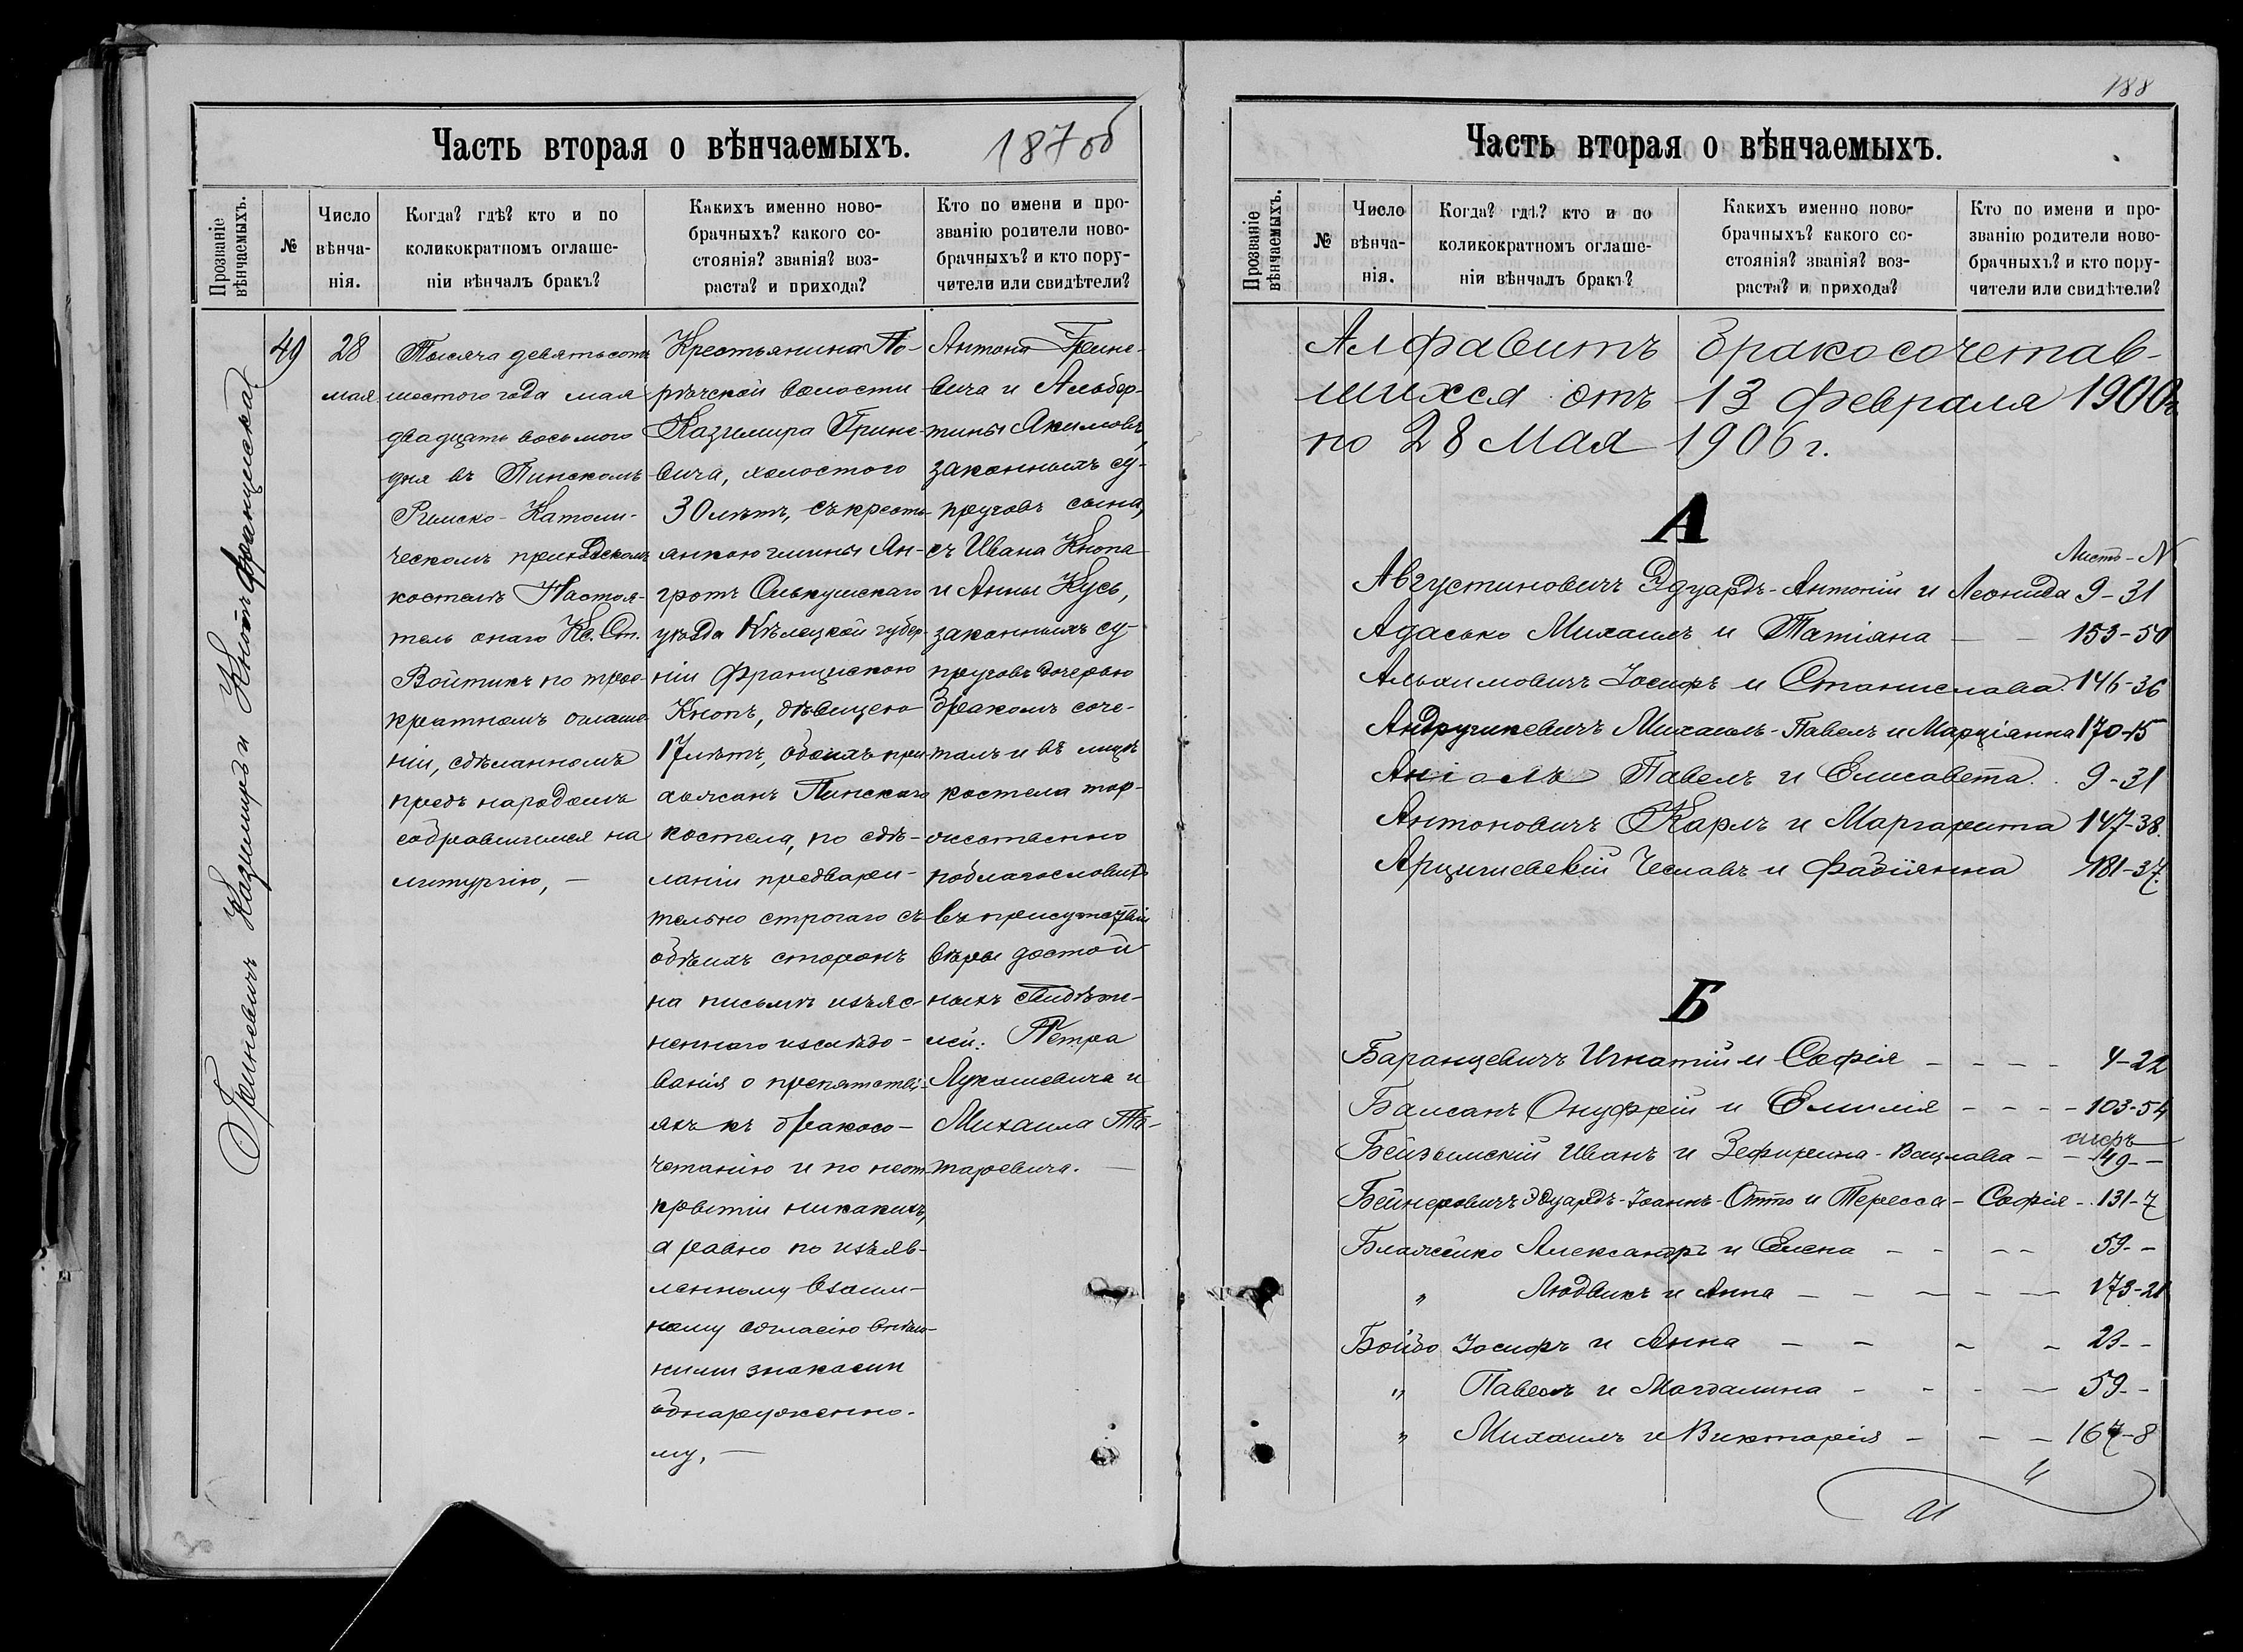 Часть вторая о вѣнчаемыхъ.
187 об
Прозваніе вѣнчаемыхъ.
№
Число вѣнча-
нія.
Когда? гдѣ? кто и по
коликократномъ оглаше-
ніи вѣнчалъ бракъ?
Какихъ именно ново-
брачныхъ? какого со-
стоянія? званія? воз-
раста? и прихода?
Кто по имени и про-
званію родители ново-
брачныхъ? и кто пору-
чители или свидѣтели?
Гриневичъ Казимиръ и Кнопъ Францишка
49
28
мая
Тысяча девятьсотъ
шестого года мая
двадцать восьмого
дня въ Пинскомъ
Римско-Католи-
ческомъ приходскомъ
костелѣ Настоя-
тель онаго Кс. Ст.
Войтикъ по трое-
кратномъ оглаше-
ніи, сдѣланномъ
предъ народомъ
собравшимся на
литургію, —
Крестьянина По-
рѣчской волости
Казимира Грине-
вича, холостого
30 лѣтъ, съ кресть-
янкою гмины Ян-
гротъ Олькушскаго
уѣзда Кѣлецкой губер-
ніи Францишкою
Кнопъ, дѣвицею
17 лѣтъ, обоихъ при-
хожанъ Пинскаго
костела, по сдѣ-
ланіи предвари-
тельно строгаго съ
обѣихъ сторонъ
на письмѣ изъяс-
неннаго изслѣдо-
ванія о препятстві-
яхъ къ бракосо-
четанію и по неот-
крытіи никакихъ,
а равно по изъяв-
ленному взаим-
ному согласію внѣш-
ними знаками
обнаруженно-
му, —
Антона Грине-
вича и Альбер-
тины Акимовъ,
законныхъ су-
пруговъ сына,
съ Ивана Кнопа
и Анны Кусь,
законныхъ су-
пруговъ дочерью
бракомъ соче-
талъ и въ лицѣ
костела тор-
жественно
поблагословилъ
въ присутствіи
вѣры достой-
ныхъ свидѣте-
лей: Петра
Лукашевича и
Михаила То-
таревича. —
188
Часть вторая о вѣнчаемыхъ.
Прозваніе вѣнчаемыхъ.
№
Число вѣнча-
нія.
Когда? гдѣ? кто и по
коликократномъ оглаше-
ніи вѣнчалъ бракъ?
Какихъ именно ново-
брачныхъ? какого со-
стоянія? званія? воз-
раста? и прихода?
Кто по имени и про-
званію родители ново-
брачныхъ? и кто пору-
чители или свидѣтели?
Алфавитъ бракосочетав-
шихся отъ 13 февраля 1900 г.
по 28 Мая 1906 г.
А
Листъ - N
Августиновичъ Эдуардъ-Антоній и Леонида 9-31
Адасько Михаилъ и Татіана — — 153-50
Альхимовичъ Іосифъ и Станислава. 146-36
Андрушкевичъ Михаилъ-Павелъ и Марціянна 170-15
Аніолъ Павелъ и Елисавета. . 9-31
Антоновичъ Карлъ и Маргарита 147-38.
Арцишевскій Чеславъ и Фабіянна 181-37.
Б
Баранцевичъ Игнатій и Софія — — — — 4-22
Балсанъ Онуфрій и Емилія — — — - 103-54
Бейзымскій Иванъ и Зефирина-Вацлава — — 49- —
Бейнеровичъ Эдуардъ-Іоаннъ-Отто и Тересса-Софія -. 131-7
Блажейко Александръ и Елена — — — — 59- —
„ Людвикъ и Анна — — — — — 173-21
Бойдо Іосифъ и Анна — — — — 23- —
„ Павелъ и Магдалина — — — — 59- —
„ Михаилъ и Викторія — — — 167-8